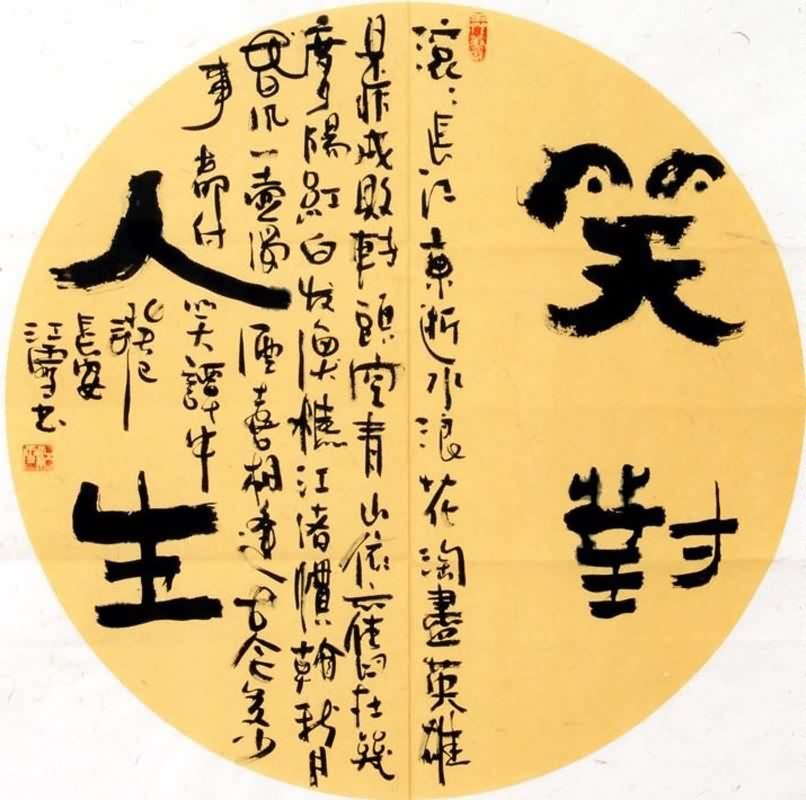 笑對
人生
滾滾長江東逝水浪花淘盡英雄
是非成敗轉頭空青山依舊在幾
度夕陽紅白发漁樵江渚慣看秋月
春风一壺濁酒喜相逢古今多少
事都付笑談中
長安
江濤书